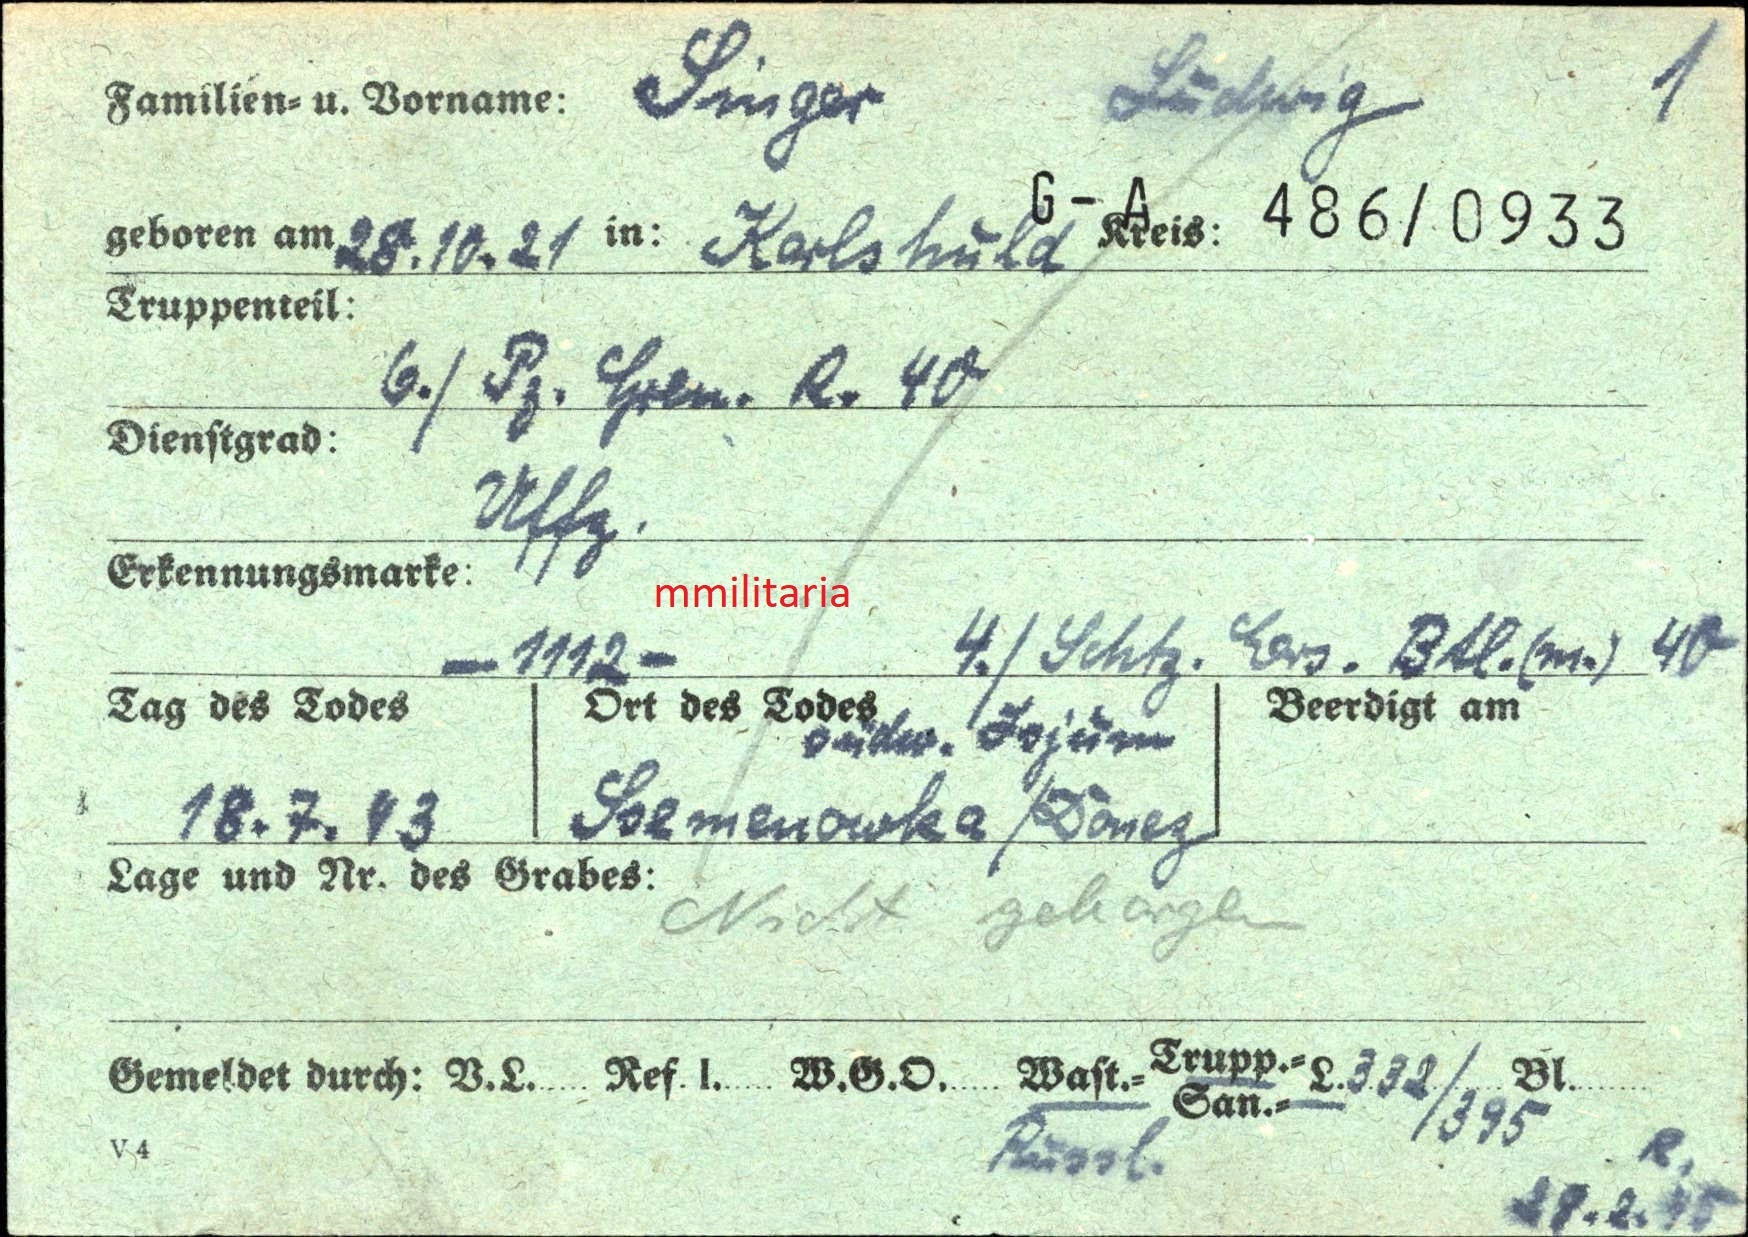 Familien- u. Vorname: Singer Ludwig 1
G-A 486/0933
geboren am 28.10.21 in: Karlshuld Kreis:
Truppenteil:
6./ Pz. Gren. R. 40
Dienstgrad:
Uffz.
Erkennungsmarke:
mmilitaria
- 1112 - 4./ Schtz. Ers. Btl. (m.) 40
Tag des Todes Ort des Todes Beerdigt am
südw. Isjum
18.7.43 Ssemenowka / Donez
Lage und Nr. des Grabes:
Nicht geborgen
Gemeldet durch: V.L..... Ref. I..... W.G.O..... Wast.= Trupp.=
San.= L. 332/395 Bl.
Russl.
V 4
R.
28.2.45